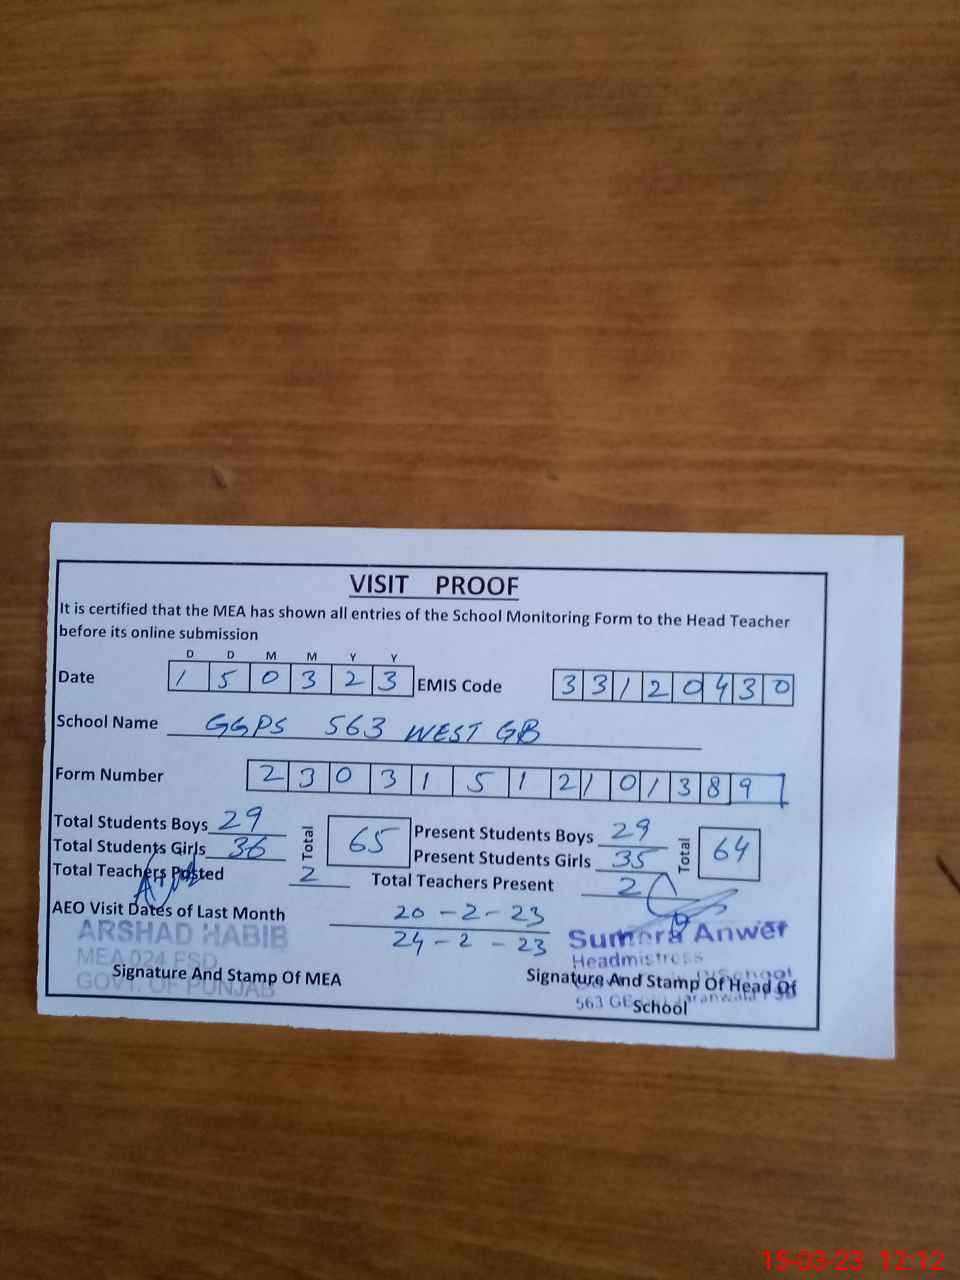 VISIT PROOF
It is certified that the MEA has shown all entries of the School Monitoring Form to the Head Teacher
before its online submission
D D M M Y Y
Date 1 5 0 3 2 3 EMIS Code 3 3 1 2 0 4 3 0
School Name GGPS 563 WEST GB
Form Number 2 3 0 3 1 5 1 2 1 0 1 3 8 9
Total Students Boys 29 Total 65 Present Students Boys 29 Total 64
Total Students Girls 36 Present Students Girls 35
Total Teachers Posted 2 Total Teachers Present 2
AEO Visit Dates of Last Month 20 - 2 - 23
24 - 2 - 23
ARSHAD HABIB
MEA 024 FSD
GOVT. OF PUNJAB
Signature And Stamp Of MEA
Sumera Anwer
Headmistress
School
563 GB Jaranwala FSD
Signature And Stamp Of Head Of
School
15-03-23 12:12